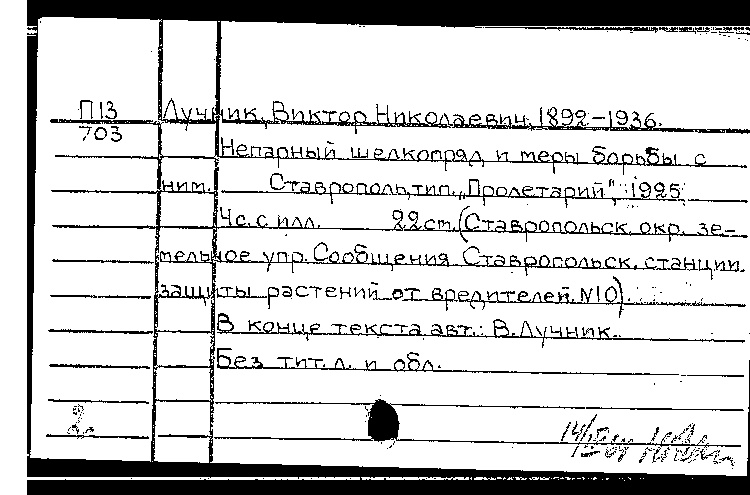 П13 Лучник, Виктор Николаевич, 1892-1936.
703
Непарный шелкопряд и меры борьбы с
ним. Ставрополь, тип. „Пролетарий", 1925.
4с. с илл. 22 ст. (Ставропольск. окр. зе-
мельное упр. Сообщения Ставропольск. станции
защиты растений от вредителей. N10).
В конце текста авт.: В. Лучник.
Без тит. л. и обл.
2
14/